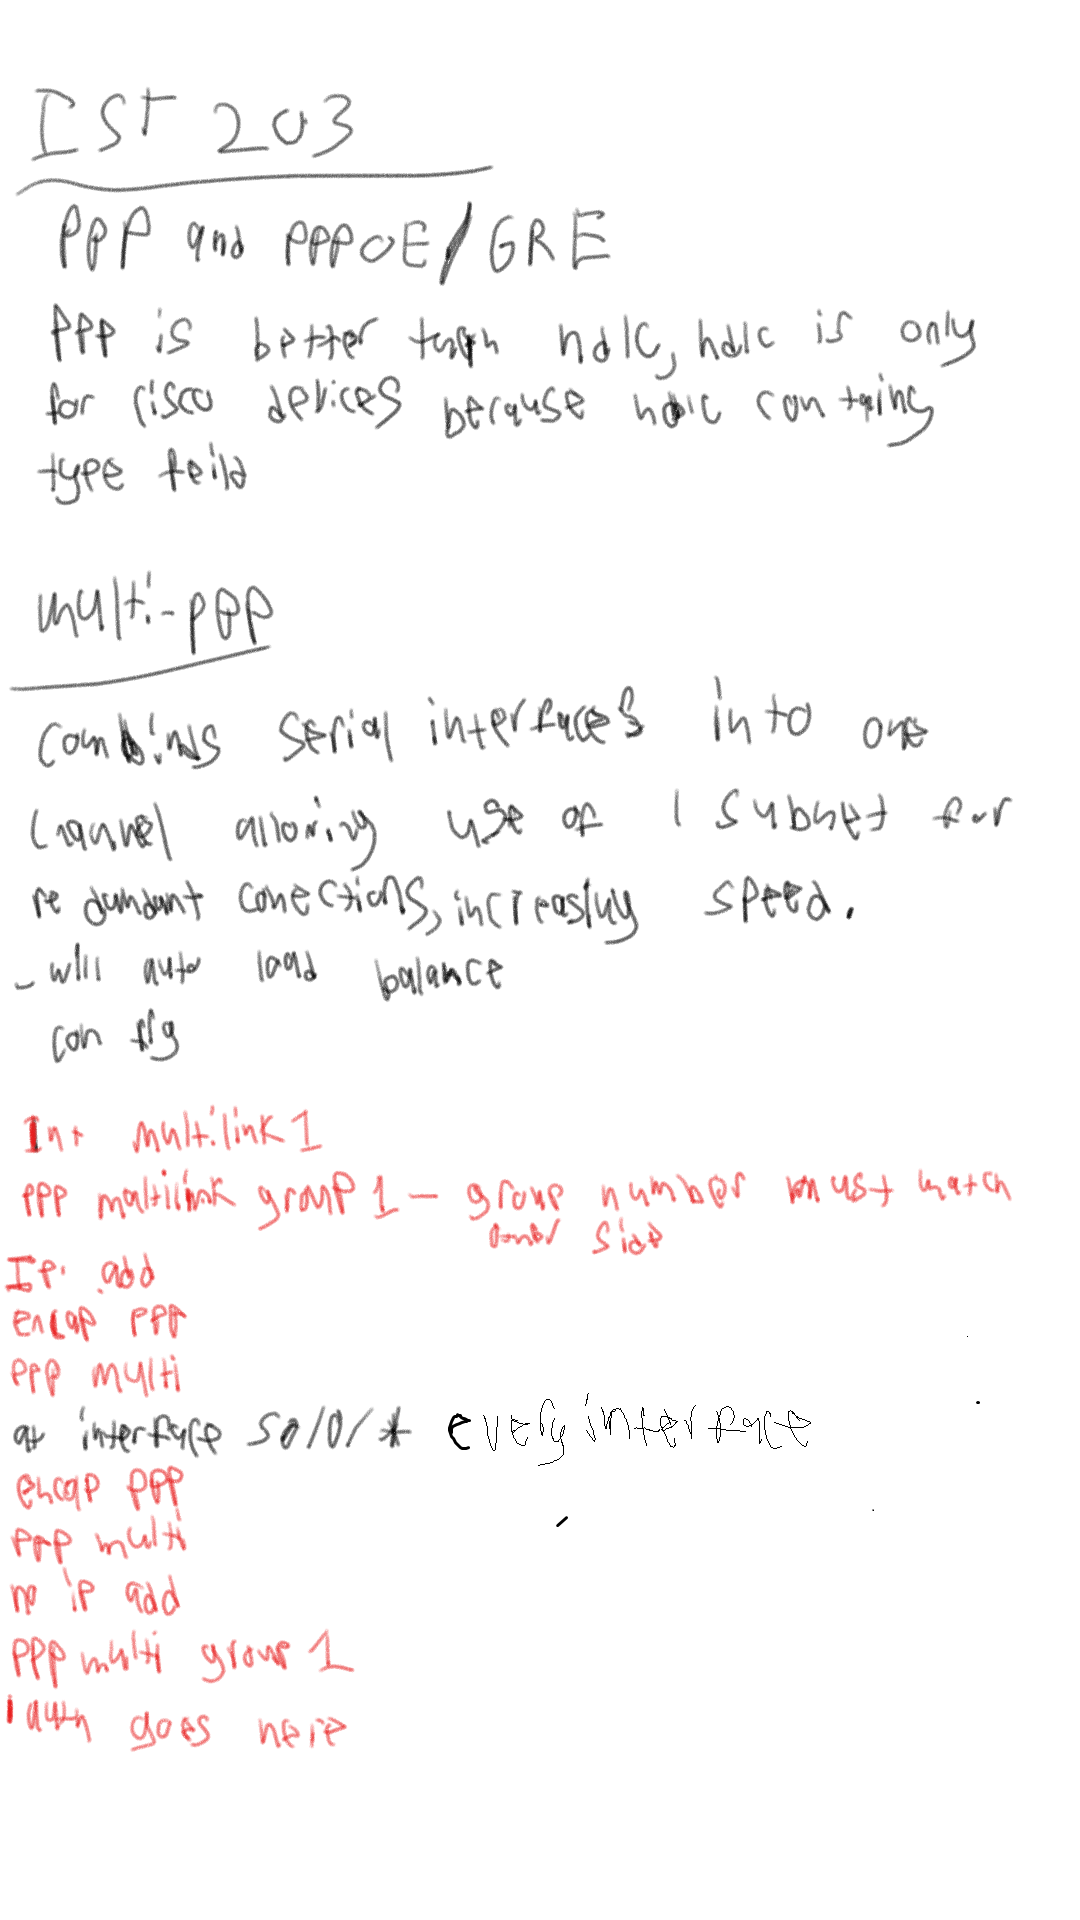 IST 203
PPP and PPPOE/GRE
PPP is better than hdlc, hdlc is only
for cisco devices because hdlc containing
type feild
multi-PPP
combinds serial interfaces into one
channel alloring use of 1 subnet for
redundant conections, increasing speed.
- will auto load balance
config
Int multilink 1
PPP multilink group 1 - group number must match
side
IP add
encap PPP
PPP multi
at interface S0/0/* every interface
encap PPP
PPP multi
no iP add
PPP multi group 1
auth goes here